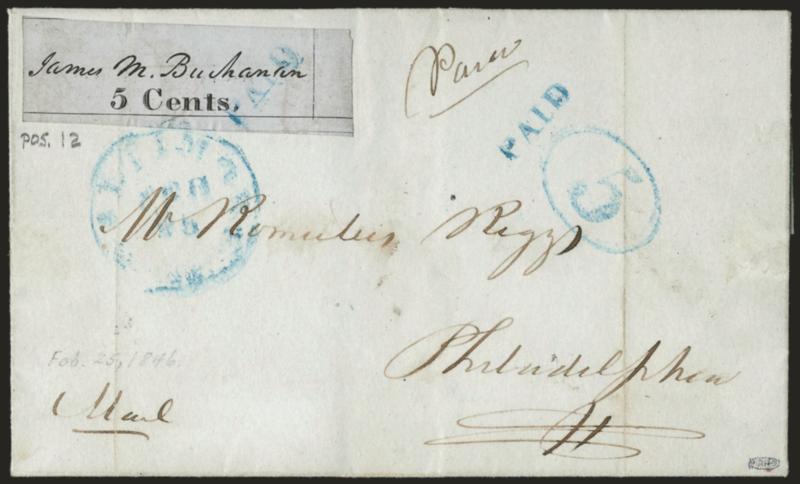 James M. Buchanan
5 Cents.
PAID
Paid
PAID
5
POS. 12
Mr Romulus Riggs
Philadelphia
Feb. 25, 1846.
Mail